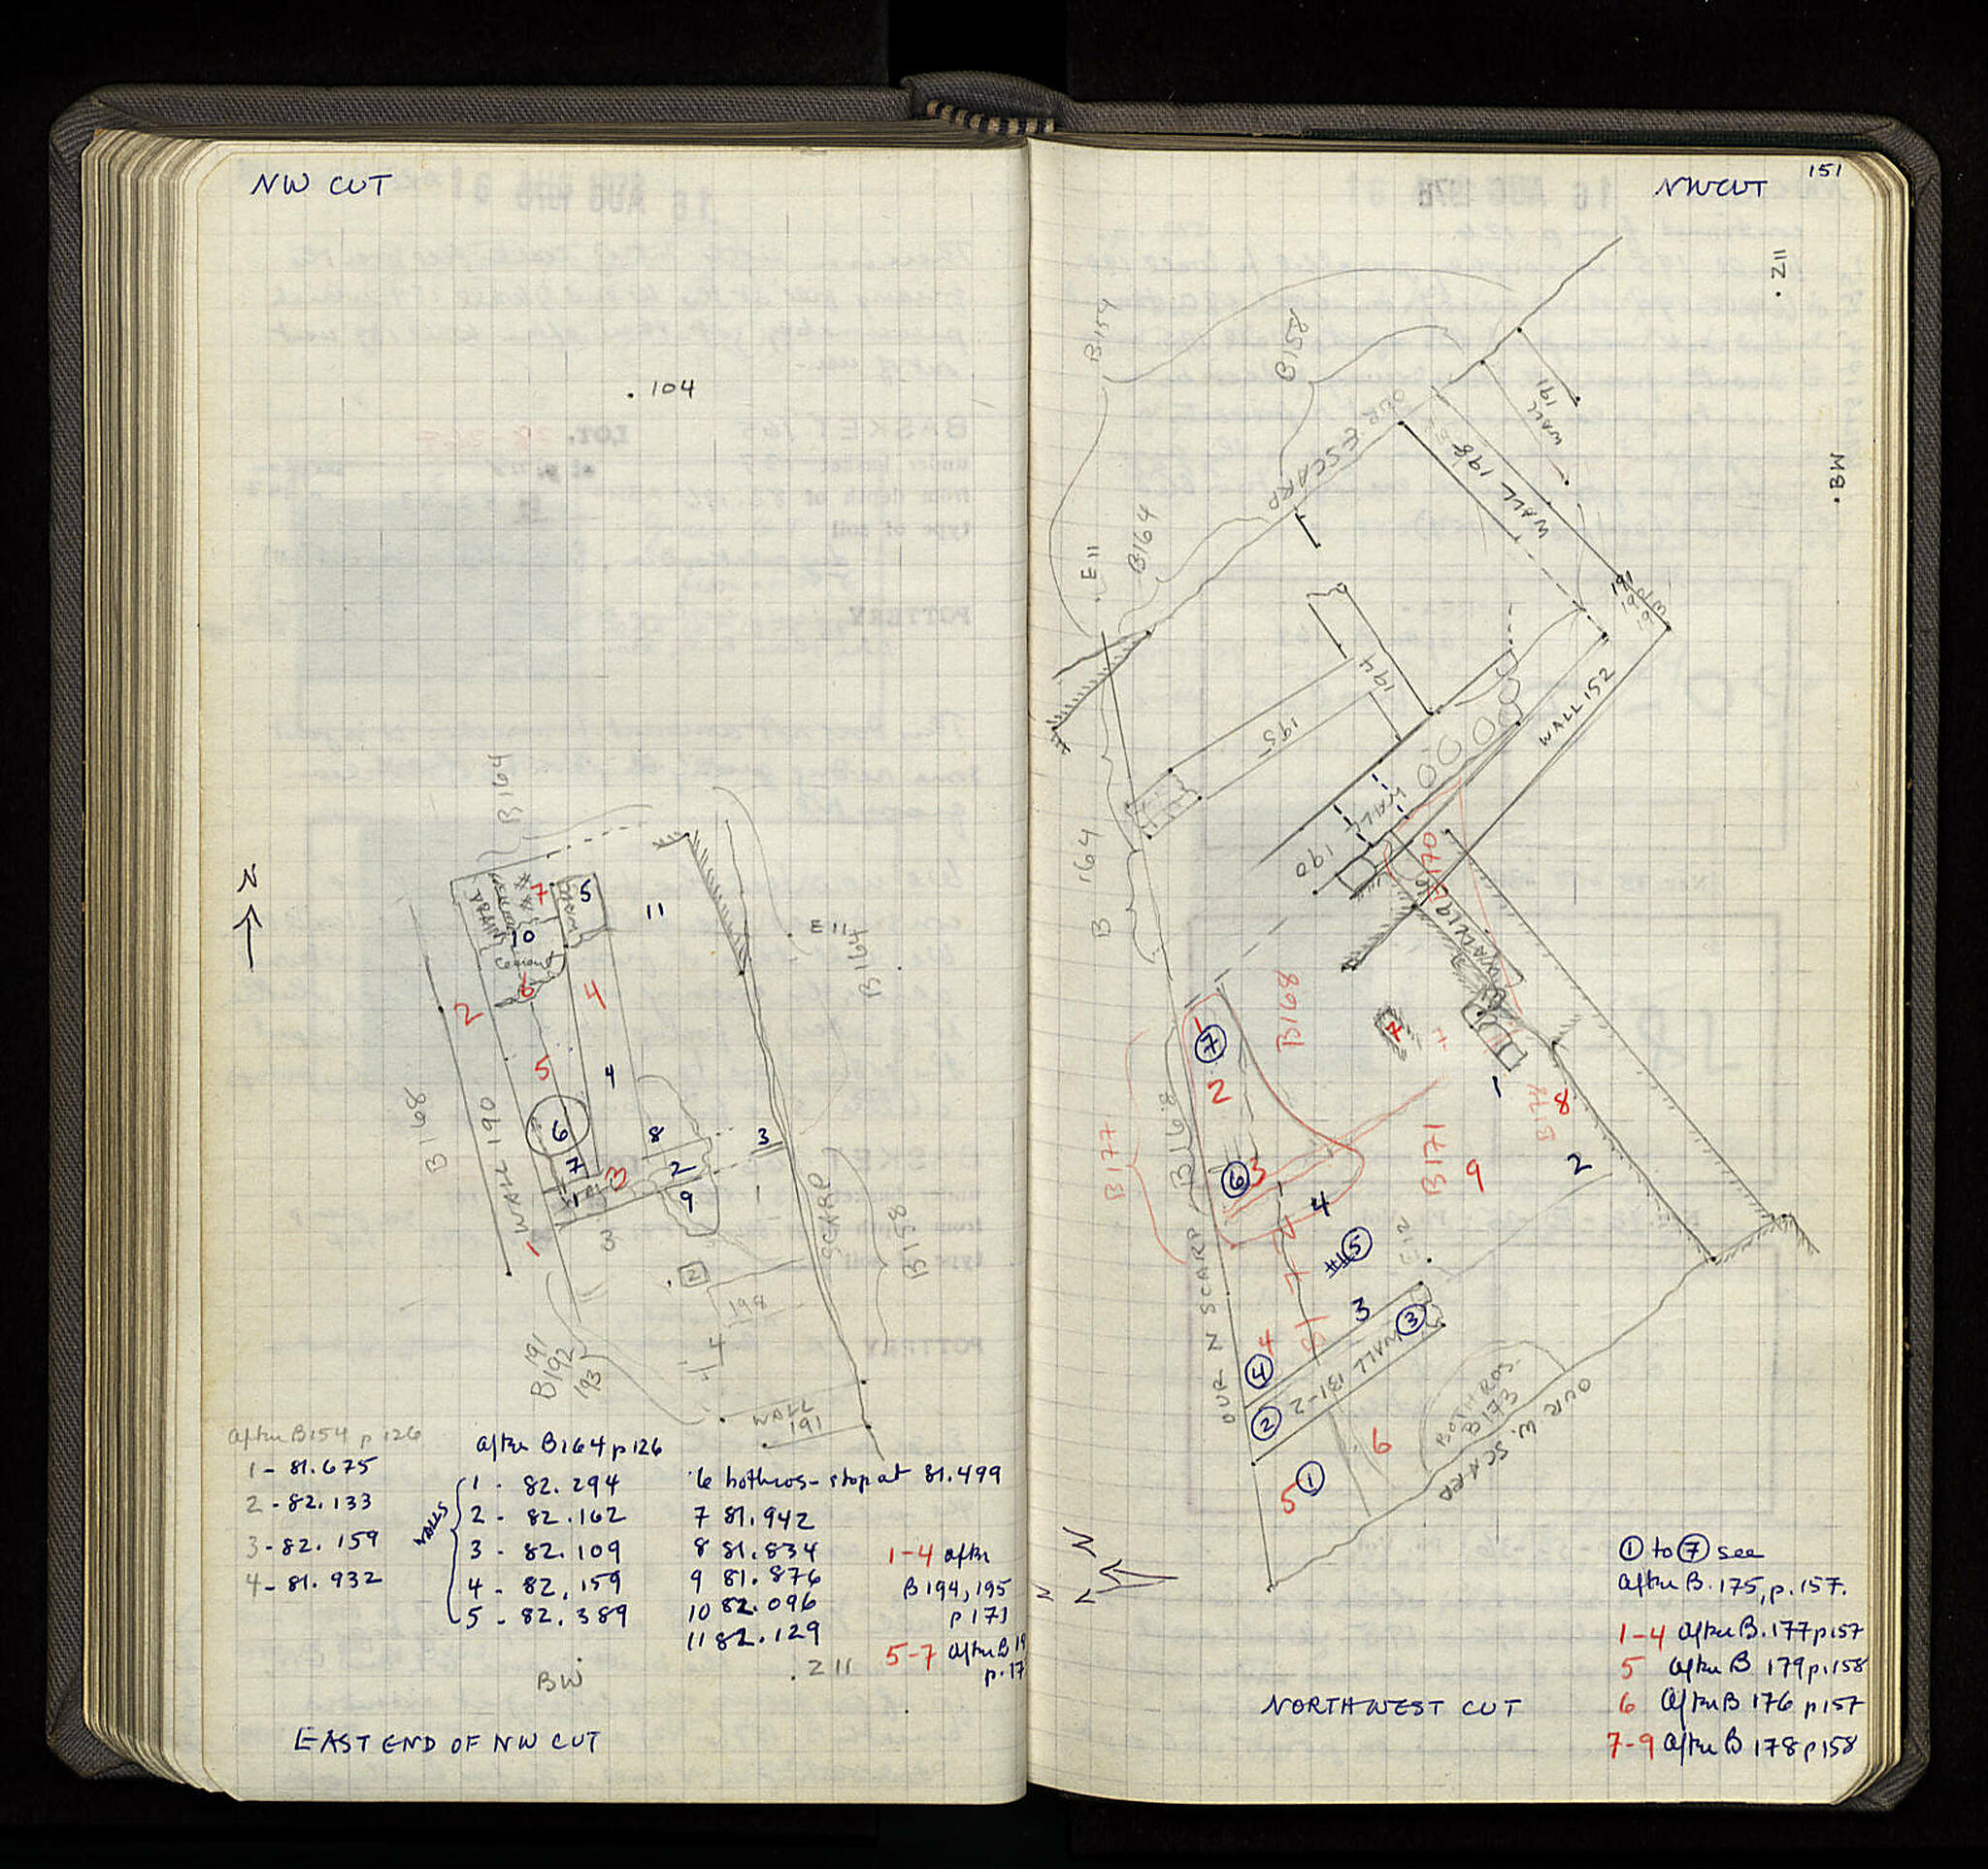 NW CUT
. 104
N
B164
7
5
11
DRAIN
10
cement
6
E 11
B164
2
4
5
4
B 168
WALL 190
6
8
3
7
2
1
3
9
1
1
3
SCARP
B158
2
198
4
191
B192
193
WALL
191
After B154 p 126
1 - 81.675
2 - 82.133
3 - 82.159
4 - 81.932
After B164 p 126
WALLS
1 - 82.294
2 - 82.162
3 - 82.109
4 - 82.159
5 - 82.389
6 bothros - stop at 81.499
7 81.942
8 81.834
9 81.876
10 82.096
11 82.129
1-4 after
B194, 195
p 171
5-7 After B 19
p. 17
BW
. Z 11
EAST END OF NW CUT
151
NW CUT
. Z11
B159
B158
WALL
191
OUR E SCARP
WALL 198
. BW
. E 11
B164
191
194
195
WALL 152
WALL
190
B 164
B170
WALL 191
B168
7
1
7
2
1
8
B177
B168
B171
9
2
6
3
4
5
E12
3
3
4
4
WALL 131-2
2
OUR N SCARP
BOTHROS
B173
6
OUR W. SCARP
5
1
N
1 to 7 see
After B. 175, p. 157.
1-4 After B. 177 p157
5 After B 179 p.158
6 After B 176 p157
7-9 After B 178 p158
NORTHWEST CUT